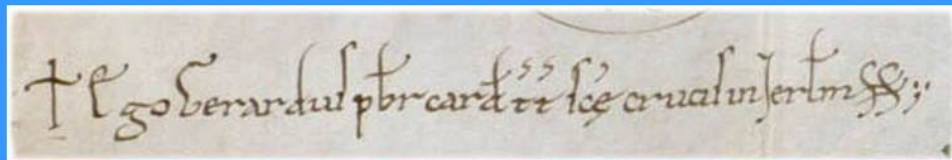 † Ego Gerardus pbr card tt sce crucis in Jerlm ss